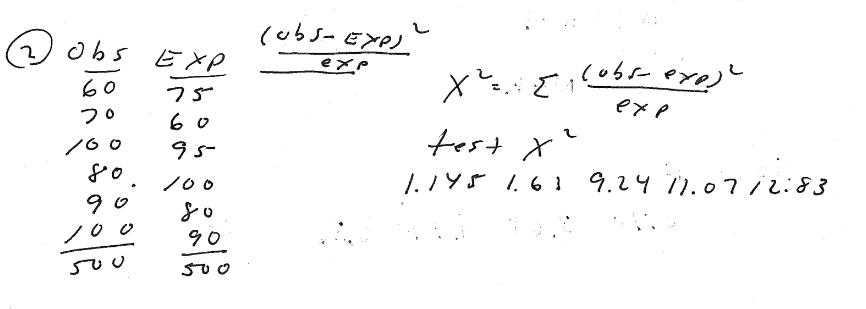 ② Obs Exp (obs-Exp)²
exp
60 75
70 60
100 95
80. 100
90 80
100 90
500 500
X² = Σ (obs-exp)²
exp
test X²
1.145 1.61 9.24 11.07 12.83